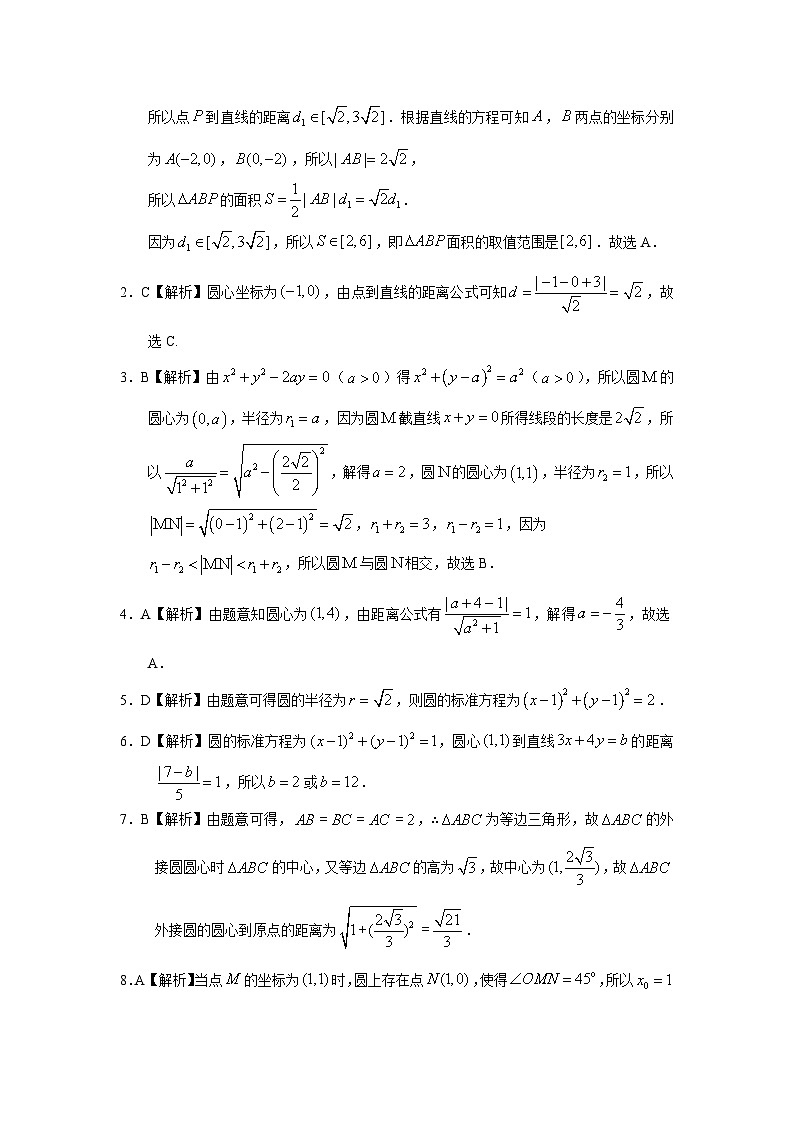 所以点P到直线的距离d₁∈[√2,3√2]．根据直线的方程可知A，B两点的坐标分别
为A(−2,0)，B(0,−2)，所以|AB|=2√2，
所以ΔABP的面积S=1/2|AB|d₁=√2d₁．
因为d₁∈[√2,3√2]，所以S∈[2,6]，即ΔABP面积的取值范围是[2,6]．故选A．
2．C【解析】圆心坐标为(−1,0)，由点到直线的距离公式可知d=|−1−0+3|/√2=√2，故
选C.
3．B【解析】由x²+y²−2ay=0（a>0）得x²+(y−a)²=a²（a>0），所以圆M的
圆心为(0,a)，半径为r₁=a，因为圆M截直线x+y=0所得线段的长度是2√2，所
以a/√(1²+1²)=√(a²−(2√2/2)²)，解得a=2，圆N的圆心为(1,1)，半径为r₂=1，所以
|MN|=√((0−1)²+(2−1)²)=√2，r₁+r₂=3，r₁−r₂=1，因为
r₁−r₂<|MN|<r₁+r₂，所以圆M与圆N相交，故选B．
4．A【解析】由题意知圆心为(1,4)，由距离公式有|a+4−1|/√(a²+1)=1，解得a=−4/3，故选
A．
5．D【解析】由题意可得圆的半径为r=√2，则圆的标准方程为(x−1)²+(y−1)²=2．
6．D【解析】圆的标准方程为(x−1)²+(y−1)²=1，圆心(1,1)到直线3x+4y=b的距离
|7−b|/5=1，所以b=2或b=12．
7．B【解析】由题意可得，AB=BC=AC=2，∴ΔABC为等边三角形，故ΔABC的外
接圆圆心时ΔABC的中心，又等边ΔABC的高为√3，故中心为(1,2√3/3)，故ΔABC
外接圆的圆心到原点的距离为√(1+(2√3/3)²)=√21/3．
8.A【解析】当点M的坐标为(1,1)时，圆上存在点N(1,0)，使得∠OMN=45°，所以x₀=1